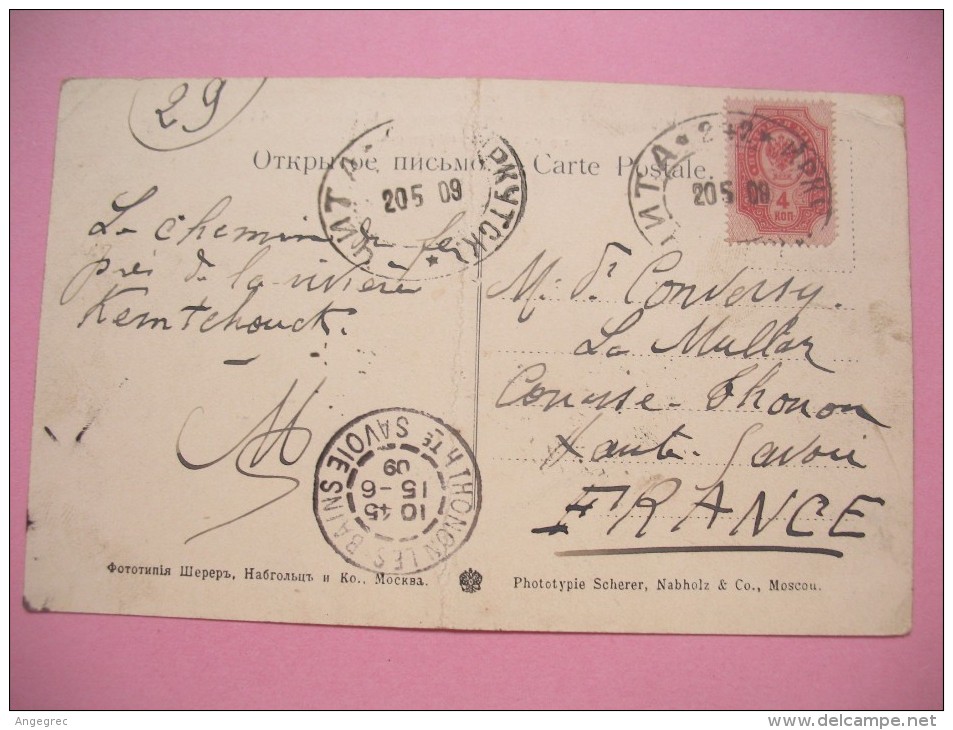 29
Открытое письмо. Carte Postale.
ЧИТА ИРКУТСК
20 5 09
ЧИТА * 2 + 2 * ИРКУ
20 5 09
4
КОП.
Le chemin de fer
près de la rivière
Kemtchouck.
M
THONON LES BAINS
Hte SAVOIE
10 45
15 - 6
09
M. de Conversy.
La
Thonon
Haute Savoie
FRANCE
Фототипія Шереръ, Набгольцъ и Ко., Москва.
Phototypie Scherer, Nabholz & Co., Moscou.
Angegrec
www.delcampe.net